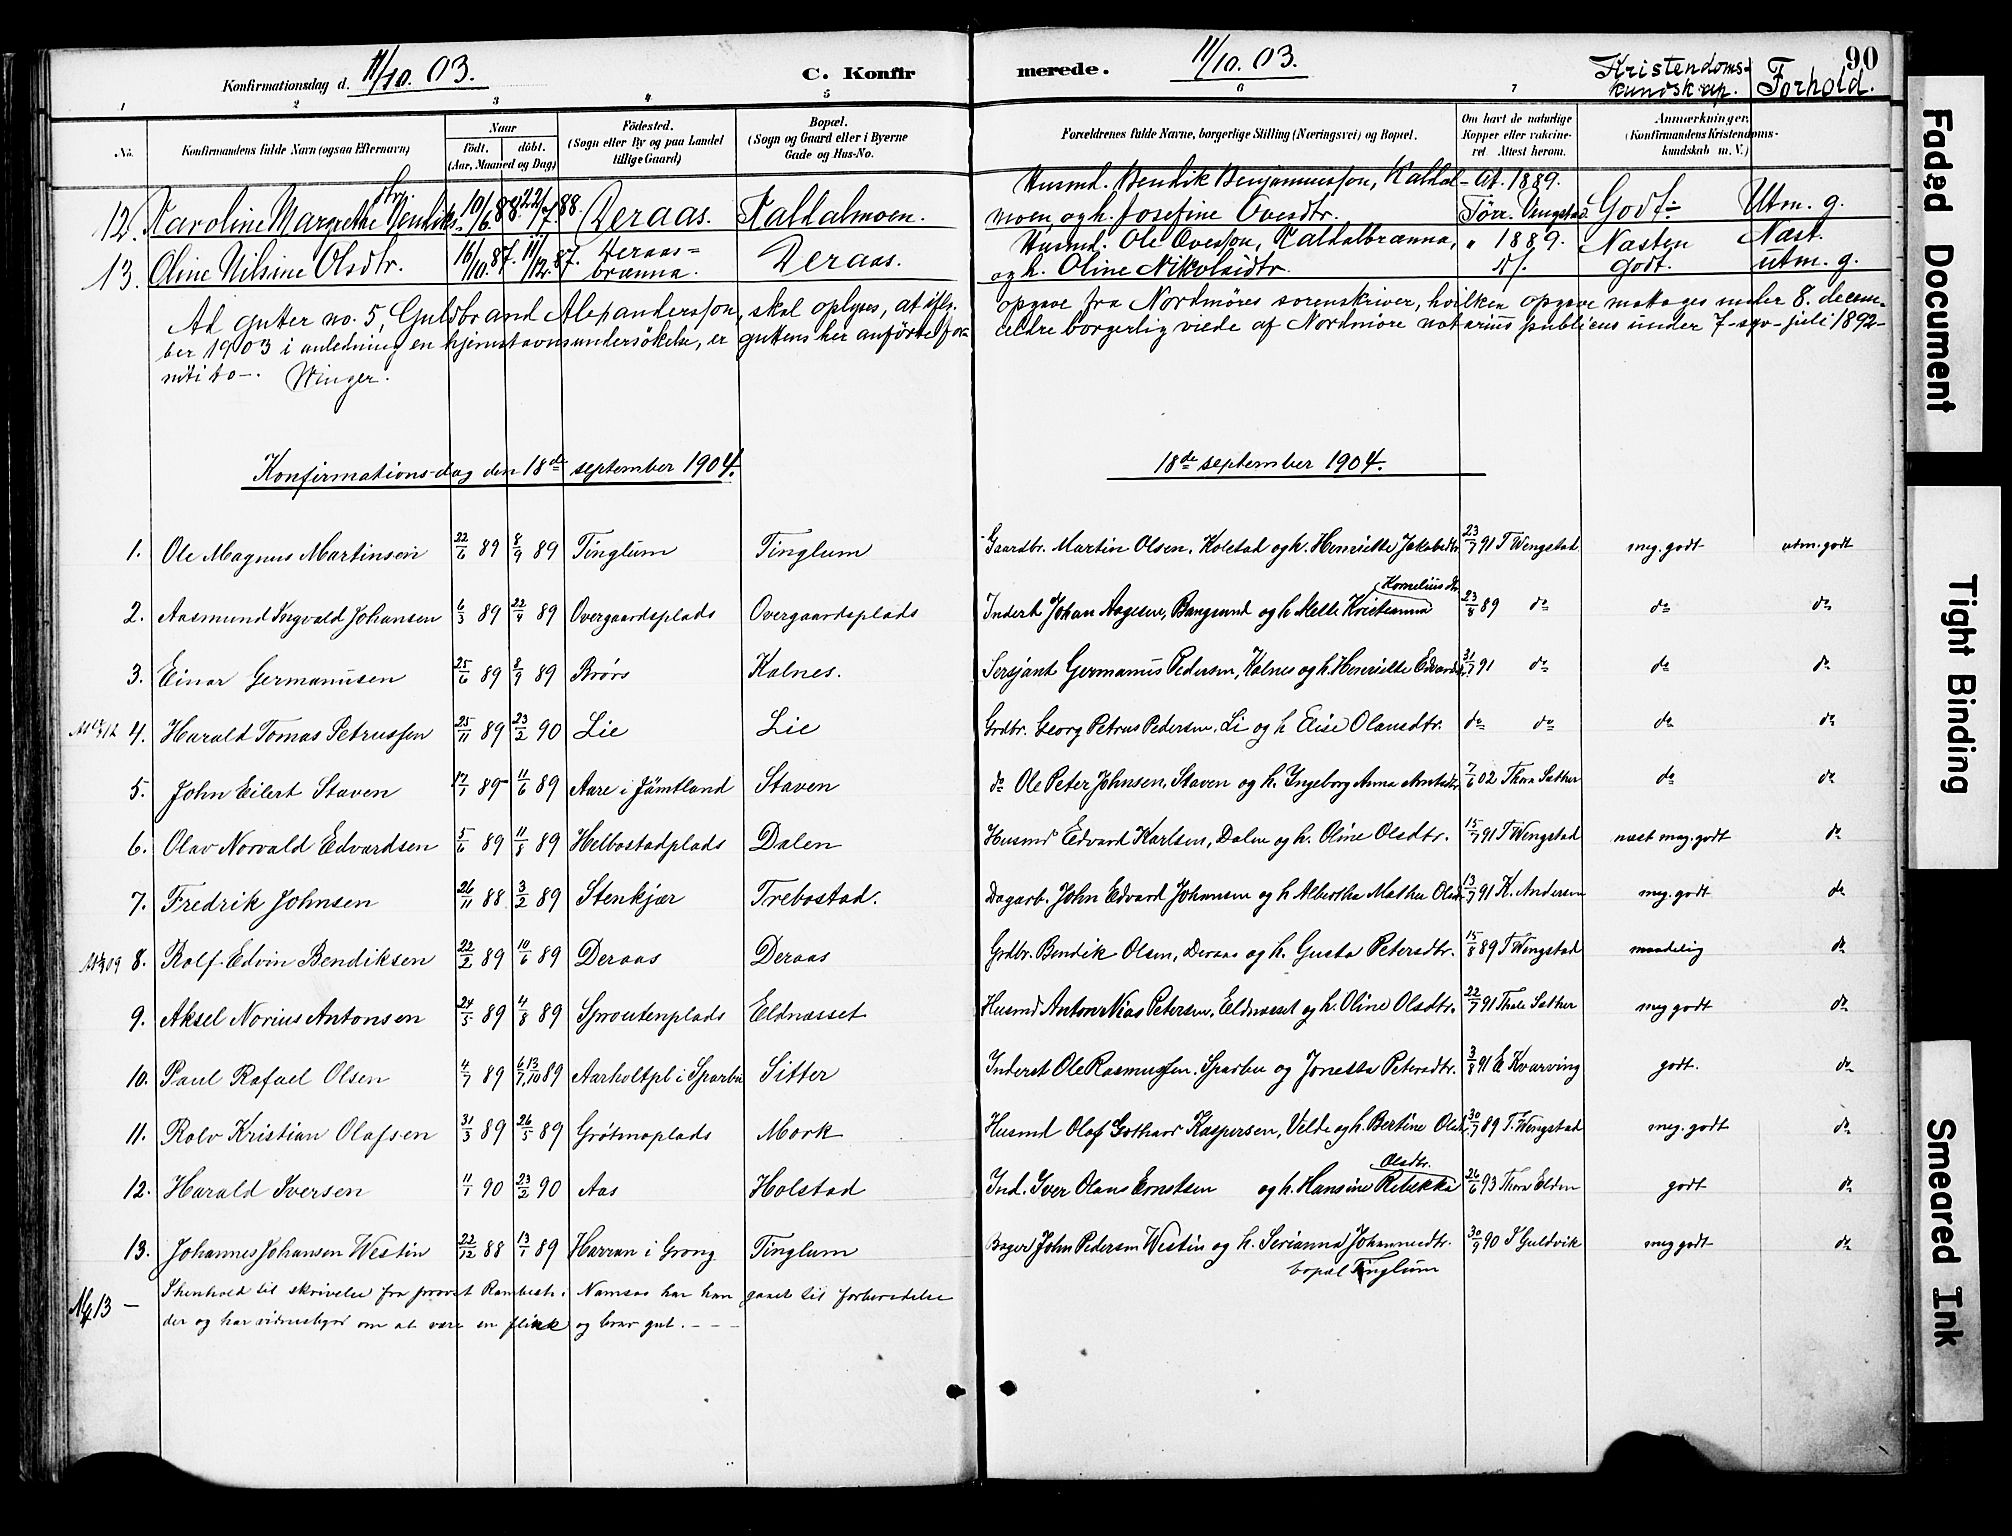 Konfirmationsdag d. 11/10. 03. C. Konfirmerede. 11/10. 03. Kristendoms- Forhold. 90
kundskap.
1 2 3 4 5 6 7
No. Konfirmandens fulde Navn (ogsaa Efternavn) Naar født. døbt. (Aar, Maaned og Dag) Fødested. (Sogn eller By og paa Landet tillige Gaard) Bopæl. (Sogn og Gaard eller i Byerne Gade og Hus-No. Forældrenes fulde Navne, borgerlige Stilling (Næringsvei) og Bopæl. Om havt de naturlige Kopper eller vakcineret. Attest herom. Anmærkninger. (Konfirmandens Kristendomskundskab m. V.)
12. Karoline Margrethe Bendiks- dtr. 10/6 88. 22/7 88. Deraas. Kaldalmoen. Husmd. Bendik Benjaminsson, Kaldal- moen, og h. Josefine Ovesdtr. At. 1889. Torr. Vengstad. Godt. Utm. g.
13. Oline Nilsine Olsdtr. 16/10. 87. 11/12. 87. Deraas- brænna. Deraas. Husmd. Ole Ovesson, Kaldalbrænna, og h. Oline Nikolaidtr. " 1889. Næsten godt. Næst. utm. g.
Ad gutter no. 5, Guldbrand Alexandersson, skal oplyses, at ifølg. opgave fra Nordmøres sorenskriver, hvilken opgave mottoges under 8. decem-
ber 1903 i anledning en hjemstavnsundersøkelse, er guttens her anførte for- ældre borgerlig viede af Nordmøre notarius publicus under 7-syv-juli 1892-
nitito-. Winger.
Konfirmations-dag den 18de september 1904. 18de september 1904.
1. Ole Magnus Martinsen 22/6 89 8/9 89 Tinglum Tinglum Gaardbr. Martin Olsen, Kolstad og h. Henriette Jakobsdtr. 23/7 91 T Wengstad meg. godt utm. godt
2. Aasmund Ingvald Johansen 6/3 89 22/4 89 Overgaardsplads Overgaardsplads Inderst Johan Aagesen, Bangsund og h. Mette Kristianna Korneliusdtr 23/8 89 do do do
3. Einar Germanusen 25/6 89 8/9 89 Brørs Kalnes. Sersjant Germanus Pedersen, Kalnes og h. Henriette Edvardsd. 31/7 91 do do do
4. Harald Tomas Petrussen 25/11 89 23/2 90 Lie Lie Grdbr. Georg Petrus Pedersen, Li og h Elise Olausdtr. do do do do
5. John Eilert Staven 17/1 89 11/6 89 Aare i Jämtland Staven do Ole Peter Johnsen, Staven og h. Ingeborg Anna Arntsdtr 7/6 02 Thora Sather do do
6. Olav Norvald Edvardsen 5/6 89 11/8 89 Helbostadplads Dalen Husmd Edvard Karlsen, Dalen og h. Oline Olsdtr. 15/7 91 T Wengstad næst meg. godt do
7. Fredrik Johnsen 26/11 88 3/2 89 Stenkjær Trebostad. Dagarb. John Edvard Johansen og h Albertha Mathea Olsdr 13/7 91 K. Andersen meg. godt do
8. Rolf Edvin Bendiksen 22/2 89 10/6 89 Deraas Deraas Grdbr. Bendik Olsen, Deraas og h. Gusta Petersdtr. 15/8 89 T Wengstad maadelig do
9. Aksel Norius Antonsen 24/5 89 4/8 89 Sproutenplads Eldnæsset Husmd Anton Nias Petersen, Eldnæsset og h. Oline Olsdtr. 22/7 91 Thale Sather meg godt do
10. Paul Rafael Olsen 4/7 89 6/7, 13/10 89 Aarholtpl i Sparbu Sitter Inderst Ole Rasmussen, Sparbu og Jonetta Petersdtr. 3/8 91 E Kvarving godt. do
11. Rolv Kristian Olafsen 31/3 89 26/5 89 Grötmoplads Mork Husmd Olaf Gothard Kaspersen, Velde og h. Bertine Olsd. 30/7 89 T. Wengstad meg. godt do
12. Harald Iversen 11/1 90 23/2 90 Aas Holstad Ind. Iver Olaus Ernstsen og h. Hansine Rebekka Olsdtr. 26/6 93 Thora Elden godt do
13. Johannes Johansen Westin 22/12 88 13/1 89 Harran i Grong Tinglum Bager John Pedersen Westin og h. Serianna Johannesdtr. 30/9 90 I Guldvik meg godt do
bopæl Tinglum
13 — I henhold til skrivelse fra provst i Namsos har han gaaet til forberedelse
der og har vidnesbyrd om at være en flink og brav gut. - - -
Faded Document
Tight Binding
Smeared Ink